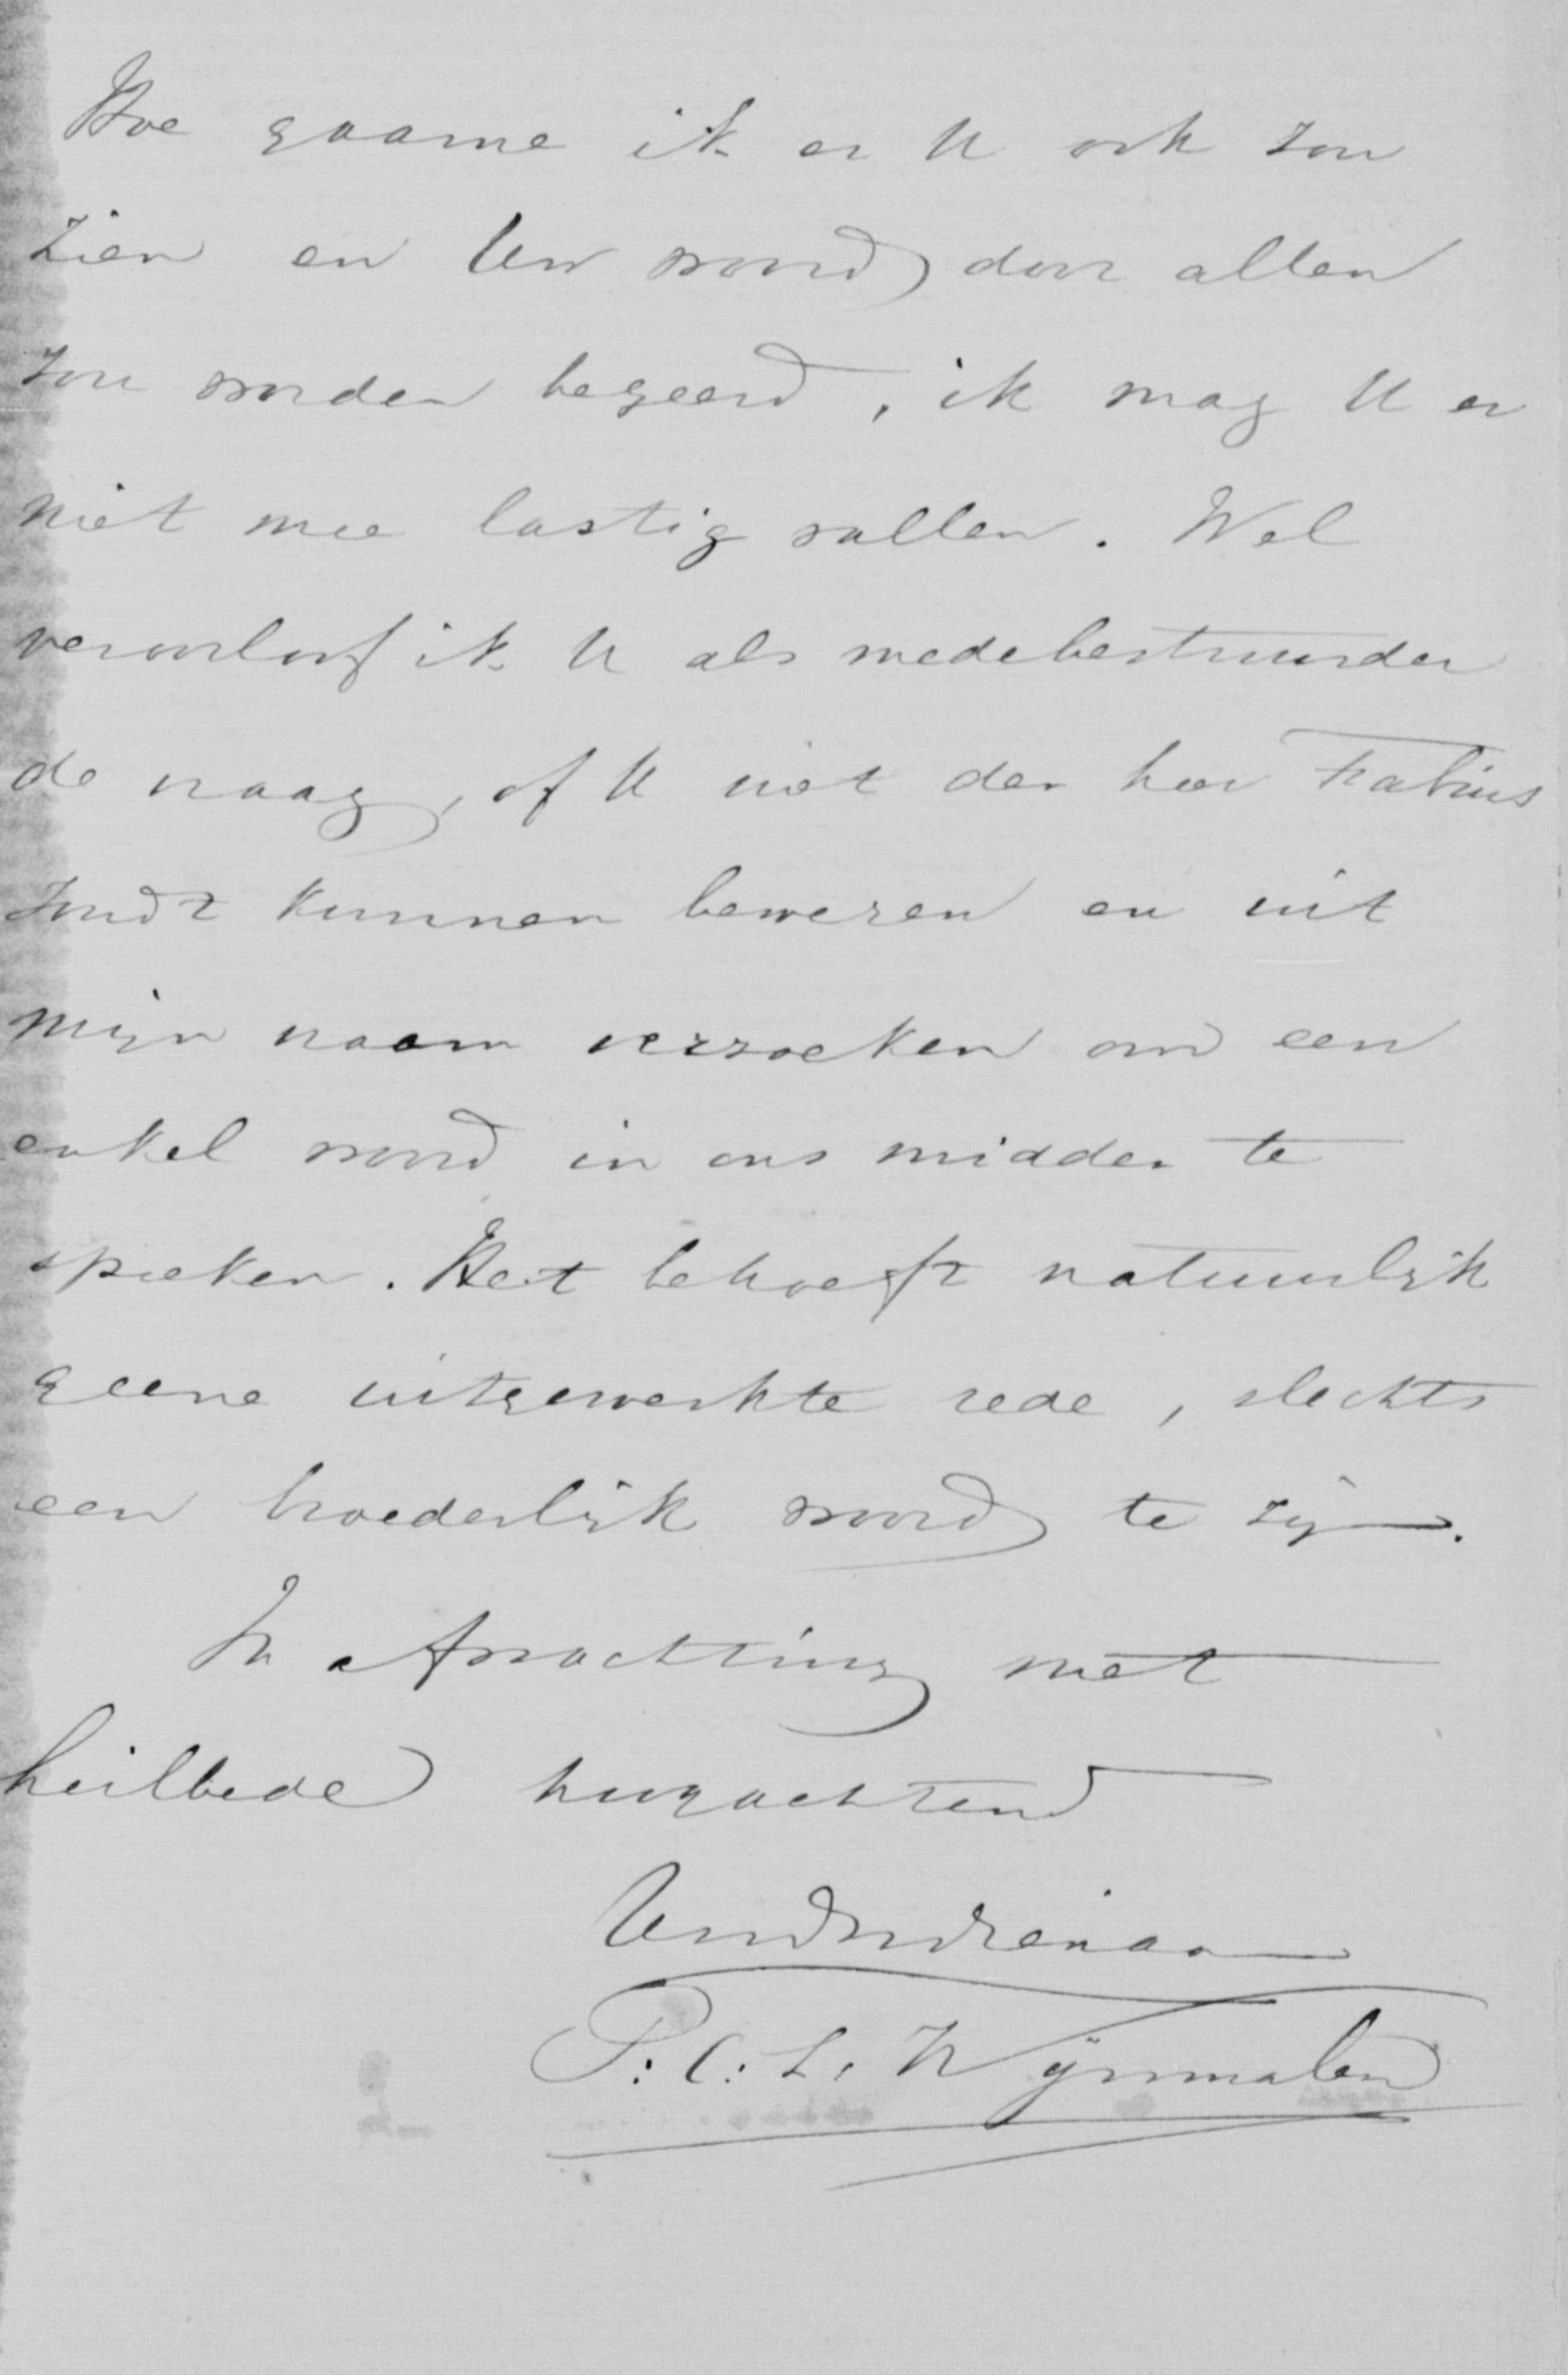 Hoe gaarne ik er U ook zou
zien en Uw woord door allen
zou worden begeerd, ik mag U er
niet mee lastig vallen. Wel
veroorloof ik U als medebestuurder
de vraag, of U niet den heer Fabius
zoudt kunnen bewegen en uit
mijn naam verzoeken om een
enkel woord in ons midden te
spreken. Het behoeft natuurlijk
geene uitgewerkte rede, slechts
een broederlijk woord te zijn.
In afwachting met
heilbede hoogachtend
Uw dw dienaar
P. C. L. Wijnmalen